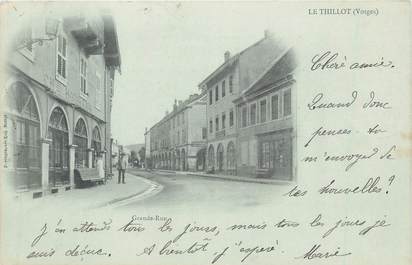 LE THILLOT (Vosges)
Chère amie.
Quand donc
penses-tu
m'envoyer de
tes nouvelles?
Grande-Rue
J'en attends tous les jours, mais tous les jours je
suis déçue. A bientôt j'espère. Marie